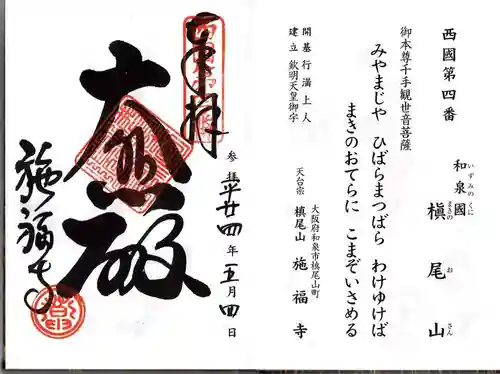 西國第四番
和泉國 槇尾山
いずみのくに まきの お さん
御本尊千手観世音菩薩
みやまじや ひばらまつばら わけゆけば
まきのおてらに こまぞいさめる
開基 行満上人
建立 欽明天皇御宇
大阪府和泉市槙尾山町
天台宗 槙尾山 施福寺
奉拝
参拝 平廿四年五月四日
大悲殿
施福寺